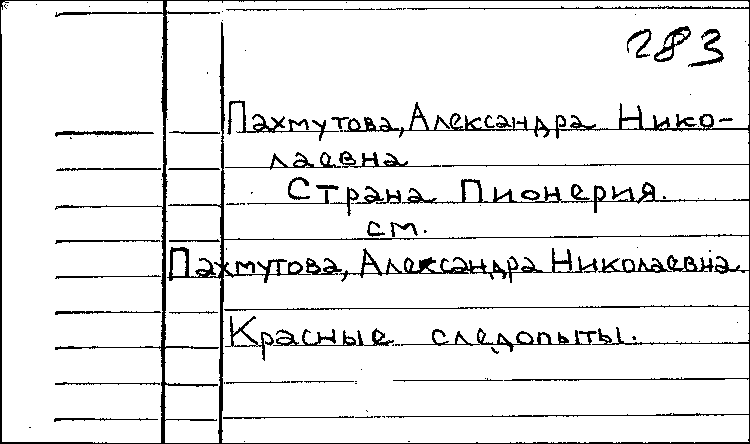 283
Пахмутова, Александра Нико-
лаевна
Страна Пионерия.
см.
Пахмутова, Александра Николаевна.
Красные следопыты.